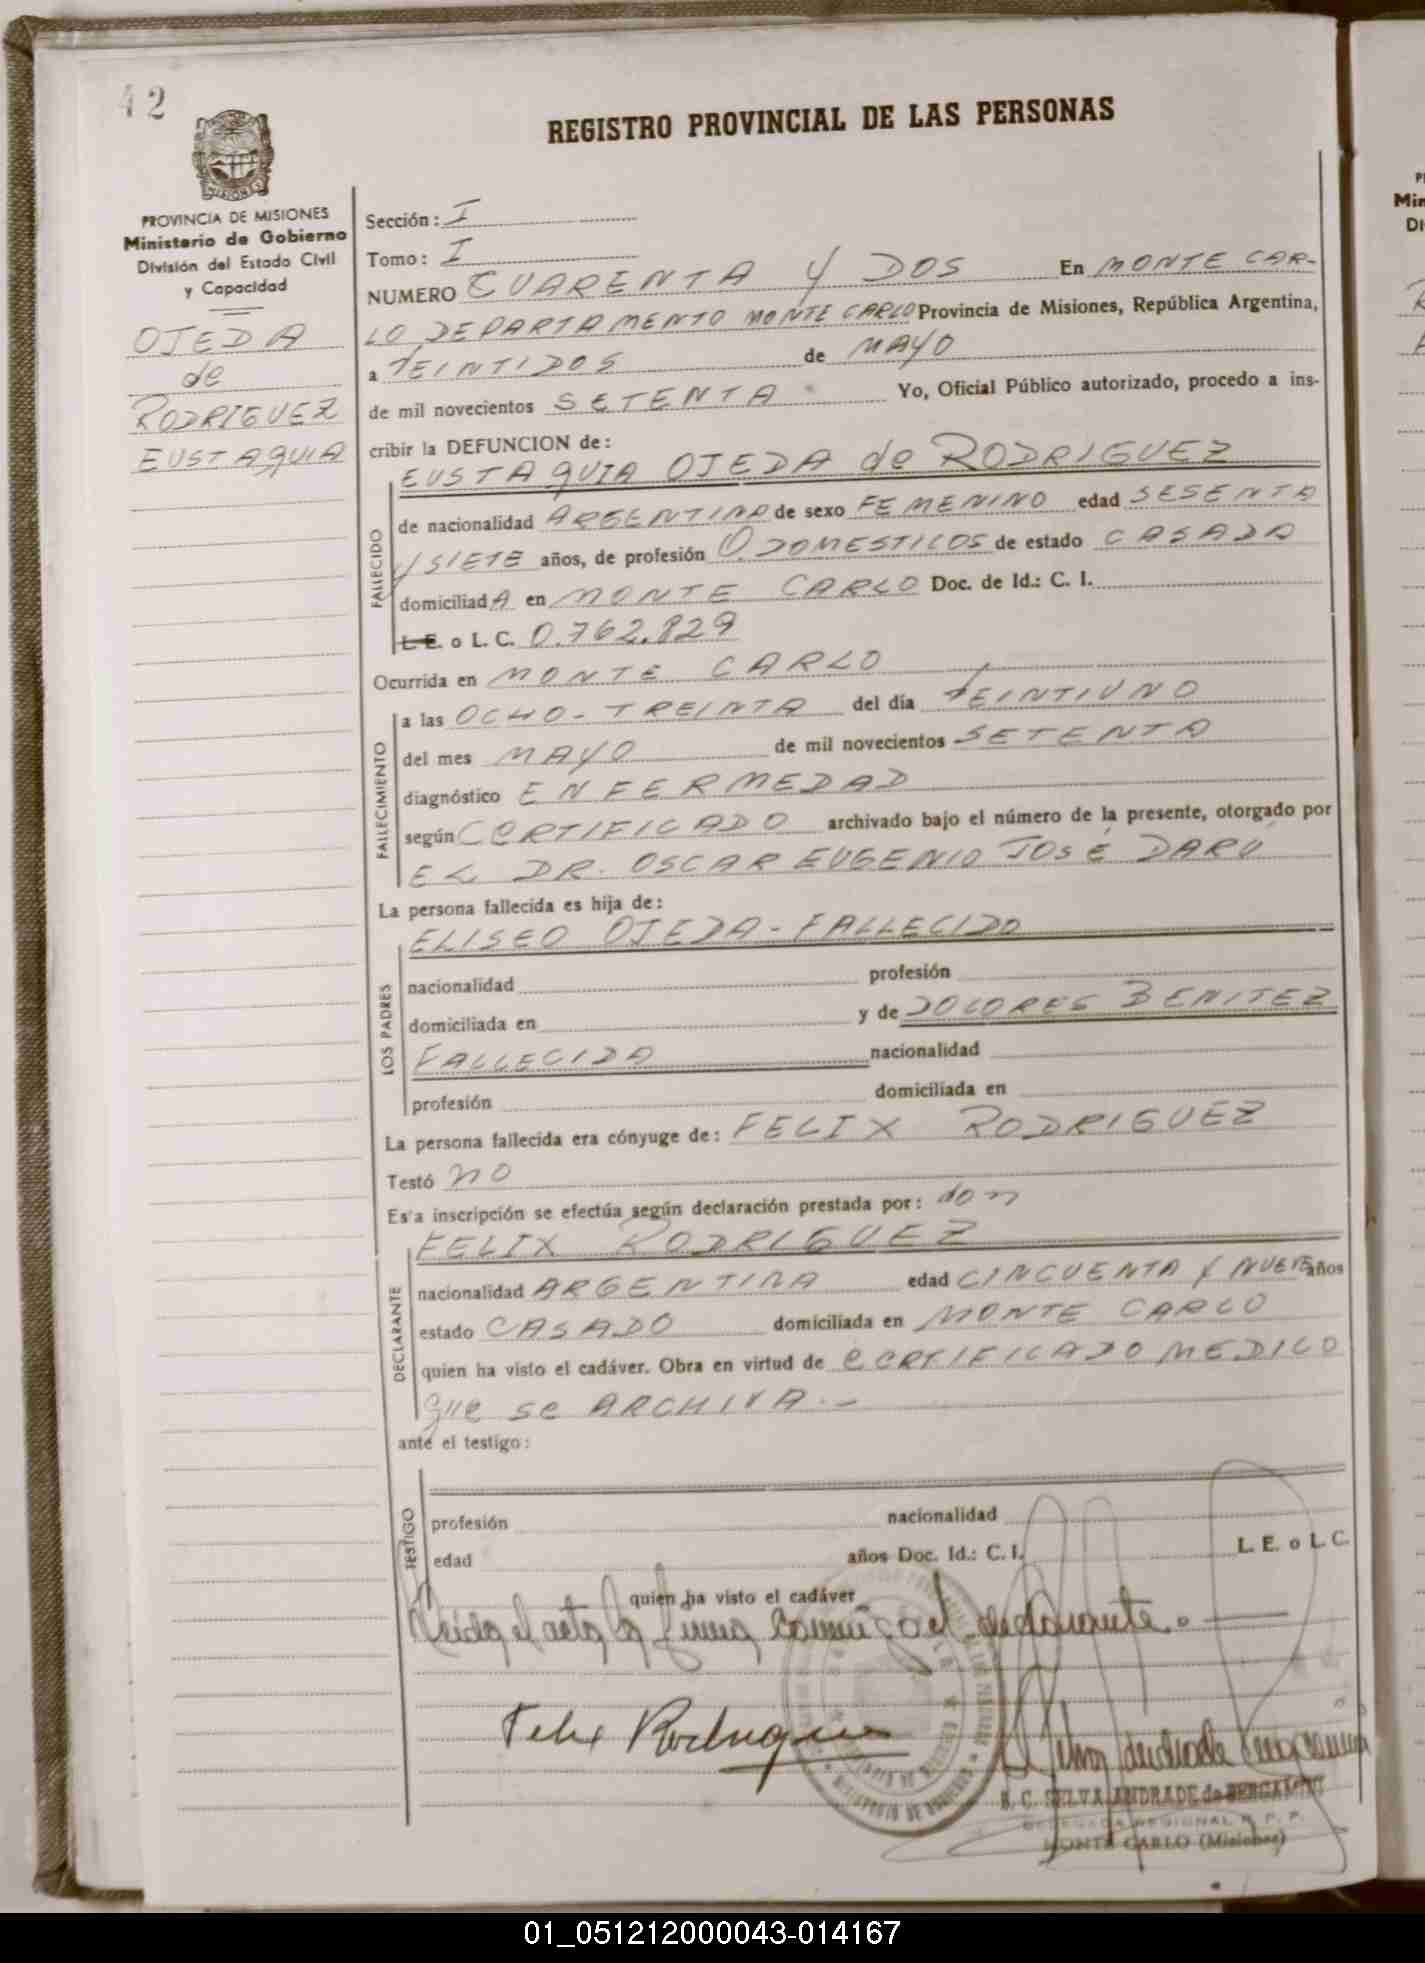 42
REGISTRO PROVINCIAL DE LAS PERSONAS
MISIONES
PROVINCIA DE MISIONES
Ministerio de Gobierno
División del Estado Civil
y Capacidad
OJEDA
de
RODRIGUEZ
EUSTAQUIA
Sección: I
Tomo: I
NUMERO CUARENTA Y DOS En MONTE CAR-
LO DEPARTAMENTO MONTE CARLO Provincia de Misiones, República Argentina,
a VEINTIDOS de MAYO
de mil novecientos SETENTA Yo, Oficial Público autorizado, procedo a ins-
cribir la DEFUNCION de:
EUSTAQUIA OJEDA de RODRIGUEZ
FALLECIDO
de nacionalidad ARGENTINA de sexo FEMENINO edad SESENTA
Y SIETE años, de profesión Q. DOMESTICOS de estado CASADA
domiciliadA en MONTE CARLO Doc. de Id.: C. I.
L. E. o L. C. 0.762.829
Ocurrida en MONTE CARLO
FALLECIMIENTO
a las OCHO-TREINTA del día VEINTIUNO
del mes MAYO de mil novecientos SETENTA
diagnóstico ENFERMEDAD
según CERTIFICADO archivado bajo el número de la presente, otorgado por
EL DR. OSCAR EUGENIO JOSÉ DARÚ
La persona fallecida es hija de:
LOS PADRES
ELISEO OJEDA-FALLECIDO
nacionalidad profesión
domiciliada en y de DOLORES BENITEZ
FALLECIDA nacionalidad
profesión domiciliada en
La persona fallecida era cónyuge de: FELIX RODRIGUEZ
Testó NO
Es'a inscripción se efectúa según declaración prestada por: don
DECLARANTE
FELIX RODRIGUEZ
nacionalidad ARGENTINA edad CINCUENTA Y NUEVE años
estado CASADO domiciliada en MONTE CARLO
quien ha visto el cadáver. Obra en virtud de CERTIFICADO MEDICO
que se ARCHIVA.-
ante el testigo:
TESTIGO
profesión nacionalidad
edad años Doc. Id.: C. I. L. E. o L. C.
quien ha visto el cadáver
Leída el acta la firma conmigo el declarante.
Felix Rodriguez
SELVA ANDRADE de BERGAMINI
DELEGADA REGIONAL R. P. P.
MONTE CARLO (Misiones)
Min
01_051212000043-014167